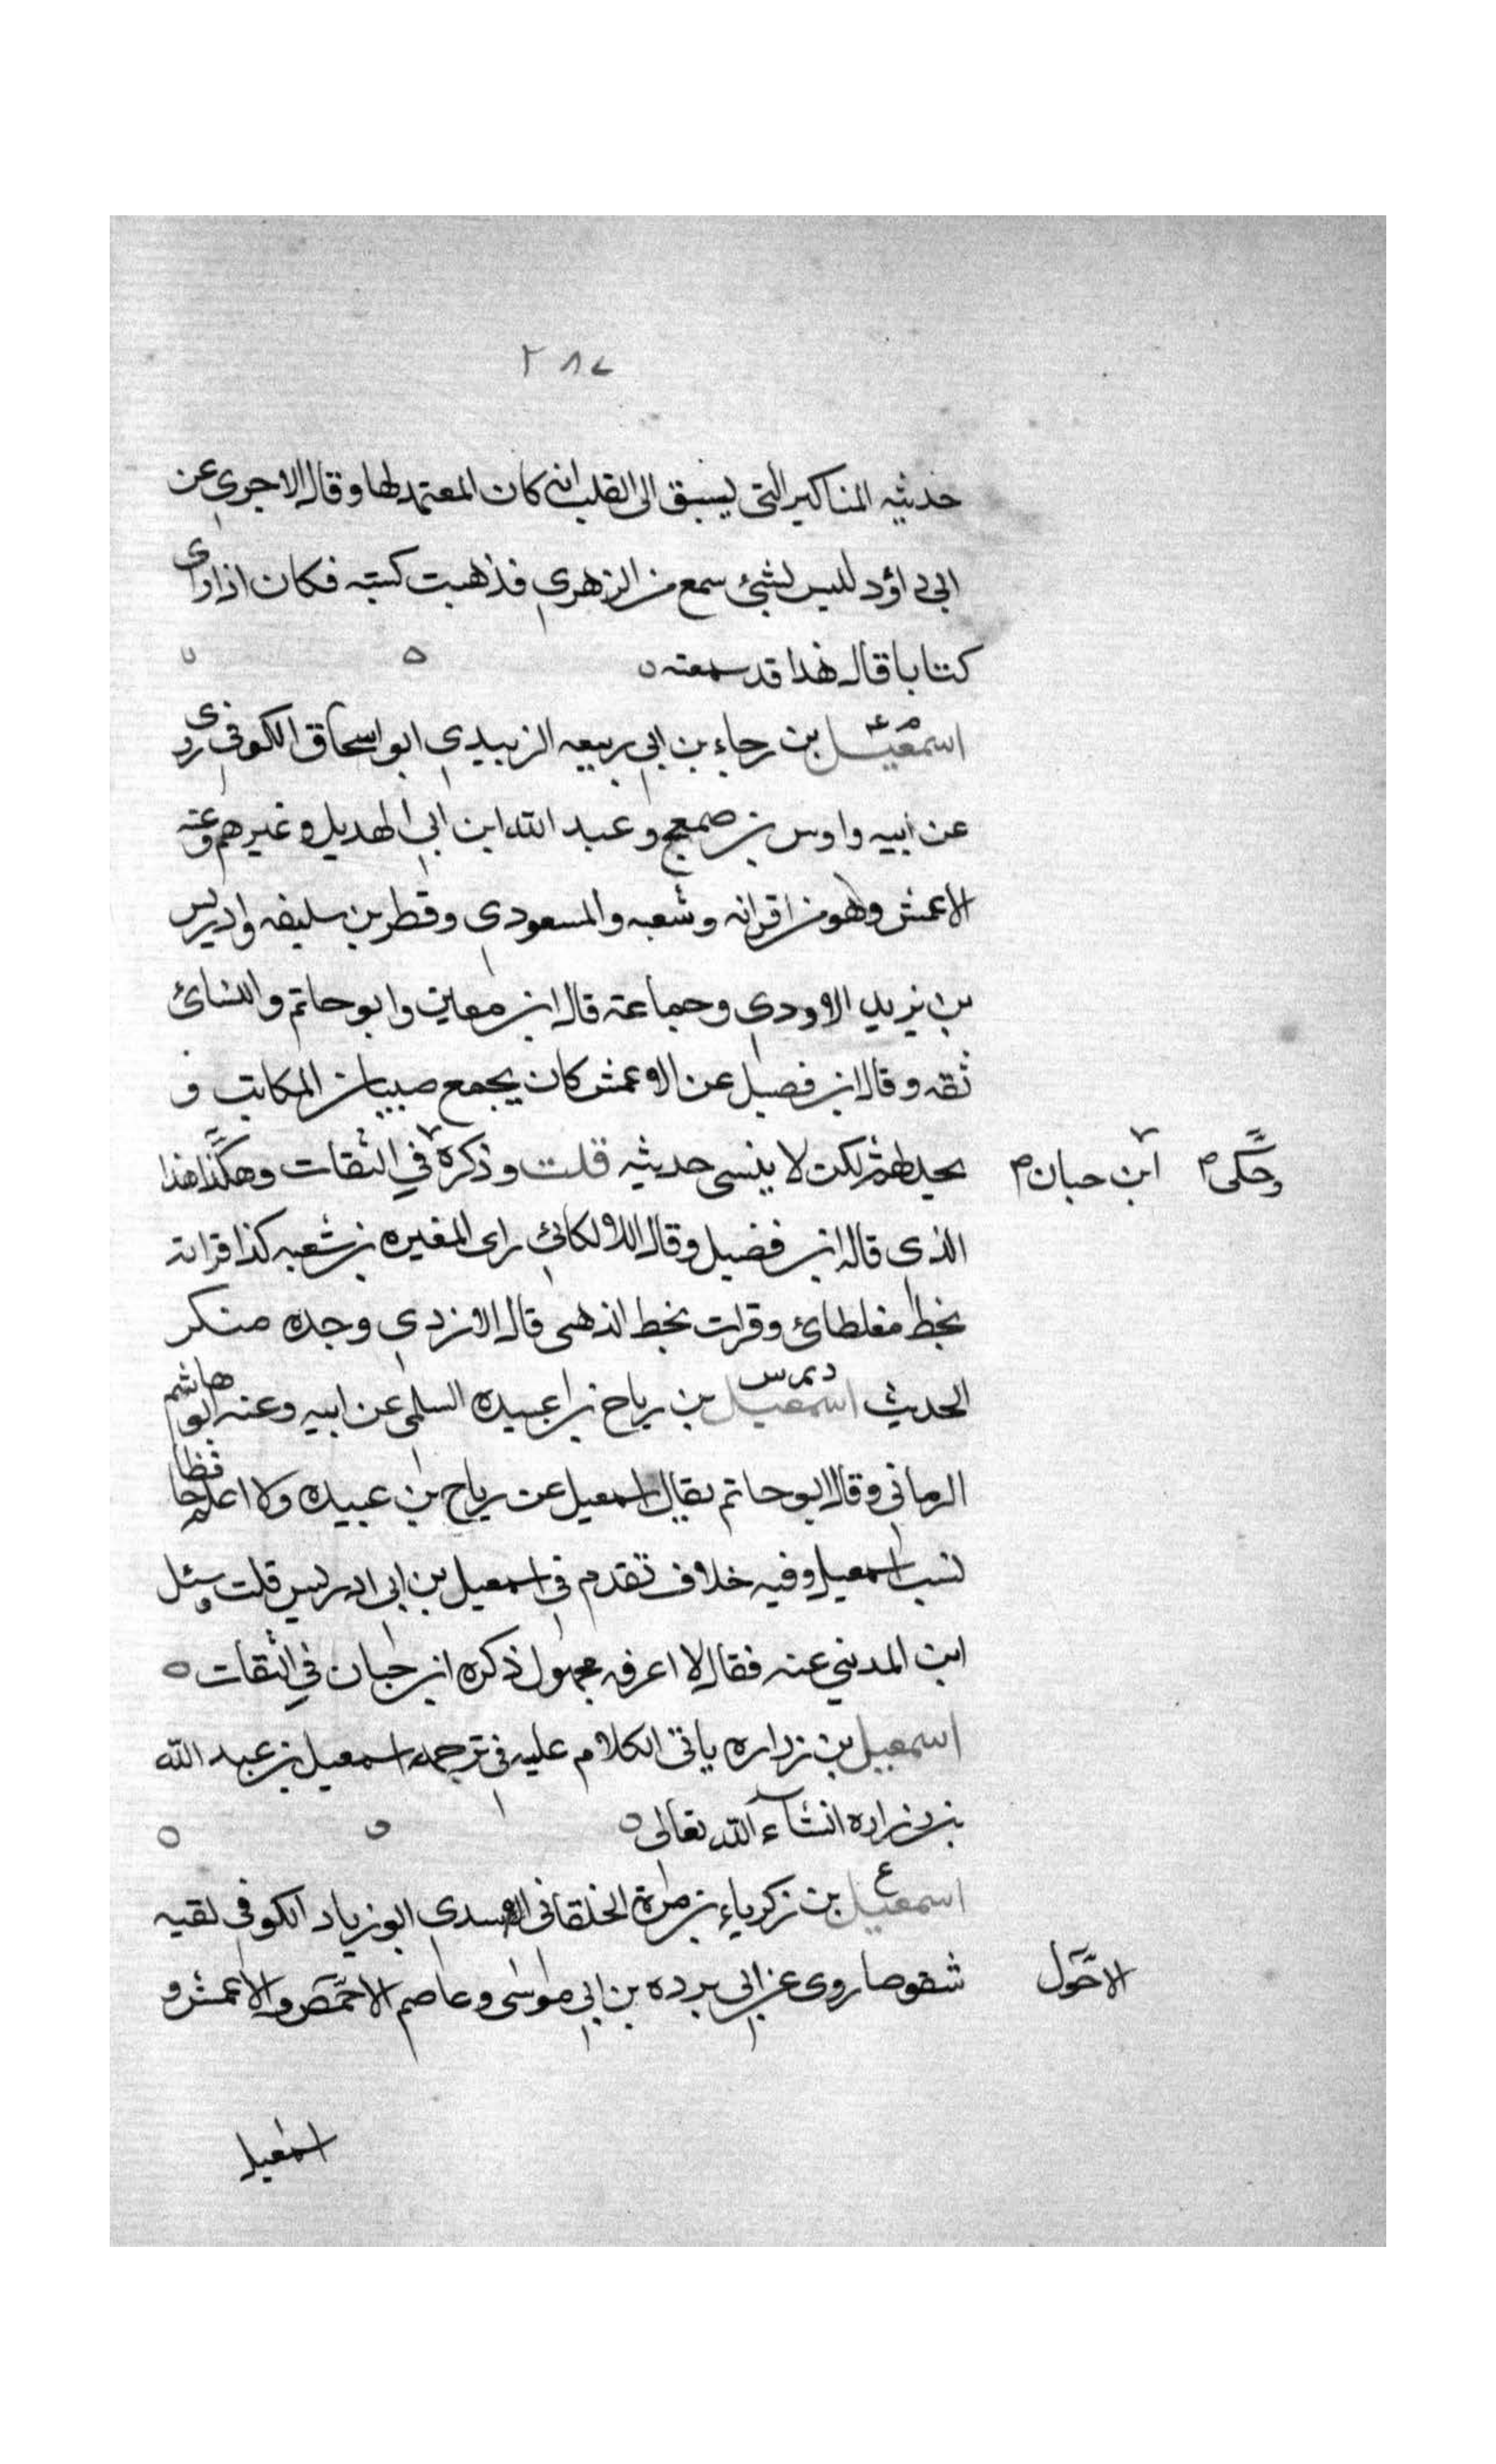 ٢٨٧
حديثه المناكير التي يسبق الى القلب انه كان المعتمد لها وقال الاجري عن
ابي داؤد ليس بشئ سمع من الزهري فذهبت كتبه فكان اذا راى
كتابا قال هذا قد سمعته
اسمعيل بن رجاء بن ابي ربيعه الزبيدي ابو اسحاق الكوفي روى
عن ابيه واوس بن ضمعج وعبد الله ابن ابي الهديل وغيرهم وعنه
الاعمش وهو من اقرانه وشعبه والمسعودي وقطر بن سليفه وادريس
بن يزيد الاودي وجماعة قال ابن معين وابو حاتم والنسائ
ثقه وقال ابن فضيل عن الاعمش كان يجمع صبيان المكاتب و
يحدثهم لكى لا ينسى حديثه قلت وذكره في الثقات وهكذا هذا
وحكى م ابن حبان م
الذي قاله ابن فضيل وقال اللالكائي راى المغيره بن شعبه كذا قراته
بخط مغلطائ وقرات بخط الذهبى قال الازدي وحده منكر
الحديث اسمعيل بن رياح بن عبيده السلمى عن ابيه وعنه ابو هاشم
الرماني وقال ابو حاتم يقال اسمعيل عن رياح بن عبيده ولا اعلم حافظا
نسب اسمعيل وفيه خلاف تقدم في اسمعيل بن ابي ادريس قلت وسئل
ابن المديني عنه فقال لا اعرفه مجهول ذكره ابن حبان في الثقات
اسمعيل بن زراره ياتى الكلام عليه في ترجمه اسمعيل بن عبد الله
بن زراره انشآء الله تعالى
اسمعيل بن زكرياء بن مرة الخلقاني الاسدي ابو زياد الكوفي لقبه
شقوصا روى عن ابي برده بن ابي موسى وعاصم الاحمص والاعمش و
الاحول
اسمعيل